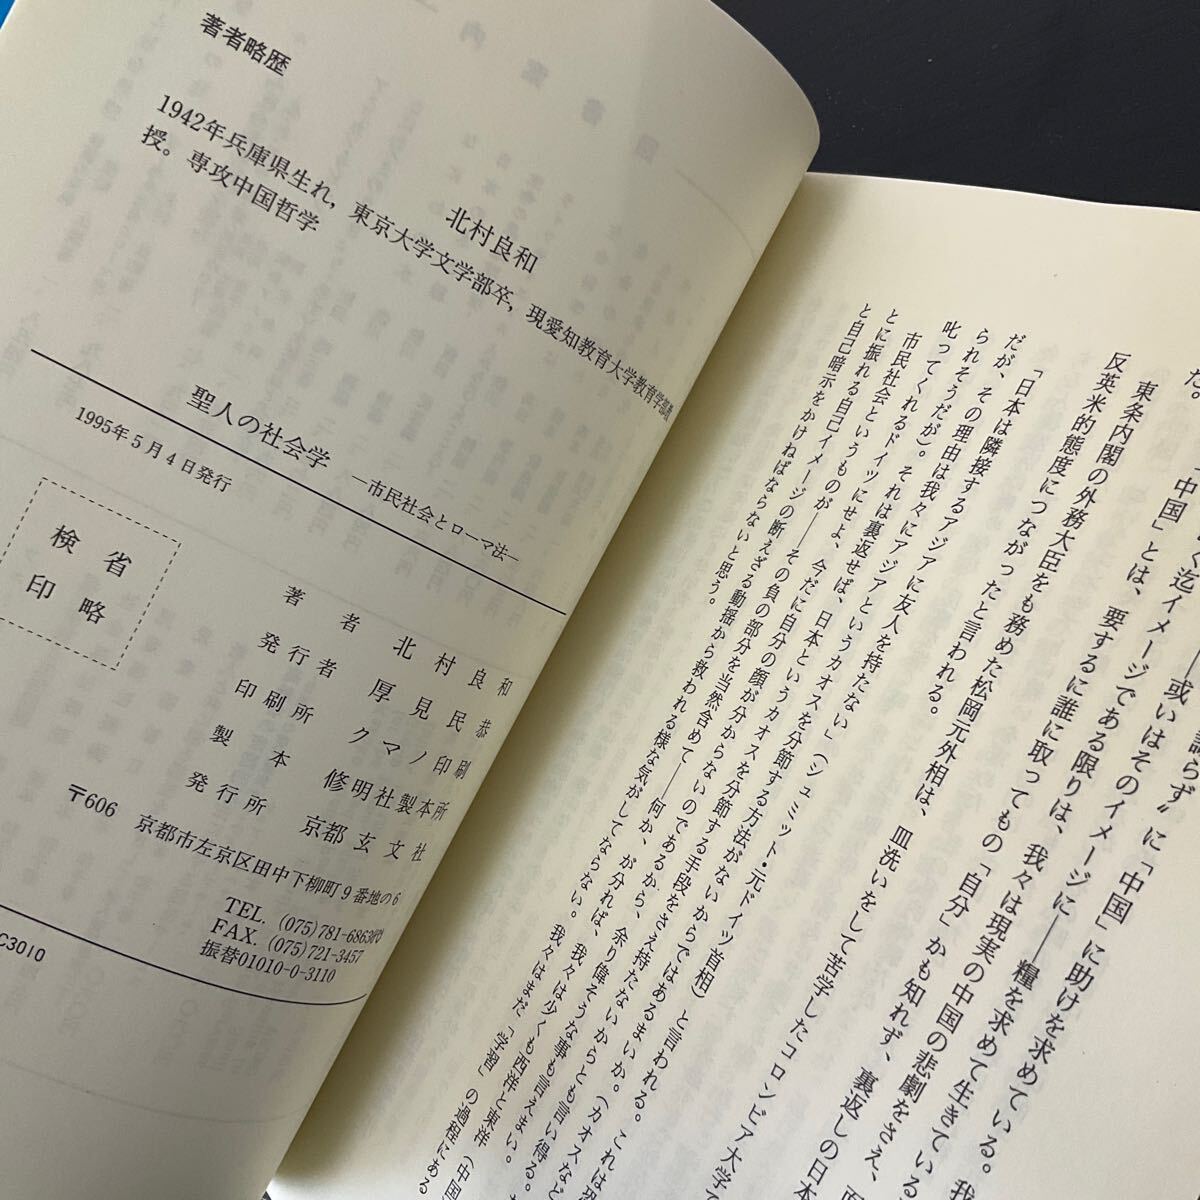 著者略歴
北村良和
1942年兵庫県生れ，東京大学文学部卒，現愛知教育大学教育学部教
授。専攻中国哲学
聖人の社会学 ―市民社会とローマ法―
1995年5月4日発行
検省
印略
著者 北村良和
発行者 厚見民恭
印刷所 クマノ印刷
製本 修明社製本所
発行所 京都玄文社
〒606 京都市左京区田中下柳町9番地の6
TEL. (075)781-6863
FAX. (075)721-3457
振替01010-0-3110
C3010
た。
迄イメージ――或いはそのイメージに――糧を求めて生きている
「中国」とは、要するに誰に取ってもの「自分」かも知れず、裏返しの日本
東条内閣の外務大臣をも務めた松岡元外相は、皿洗いをして苦学したコロンビア大学で
反英米的態度につながったと言われる。
「日本は隣接するアジアに友人を持たない」（シュミット・元ドイツ首相）と言われる。これは
だが、その理由は我々にアジアというカオスを分節する方法がないからではあるまいか。（カオスなど
られそうだが）。それは裏返せば、日本というカオスを分節する手段をさえ持たないから、余り偉そうな事も言えまい。
叱ってくれるドイツにせよ、今だに自分の顔が分からないのであるから、
市民社会というものが――その負の部分を当然含めて――何か、が分れば、我々は少くも西洋と東洋（中国
とに振れる自己イメージの断えざる動揺から救われる様な気がしてならない。我々はまだ「学習」の過程にある
と自己暗示をかけねばならないと思う。